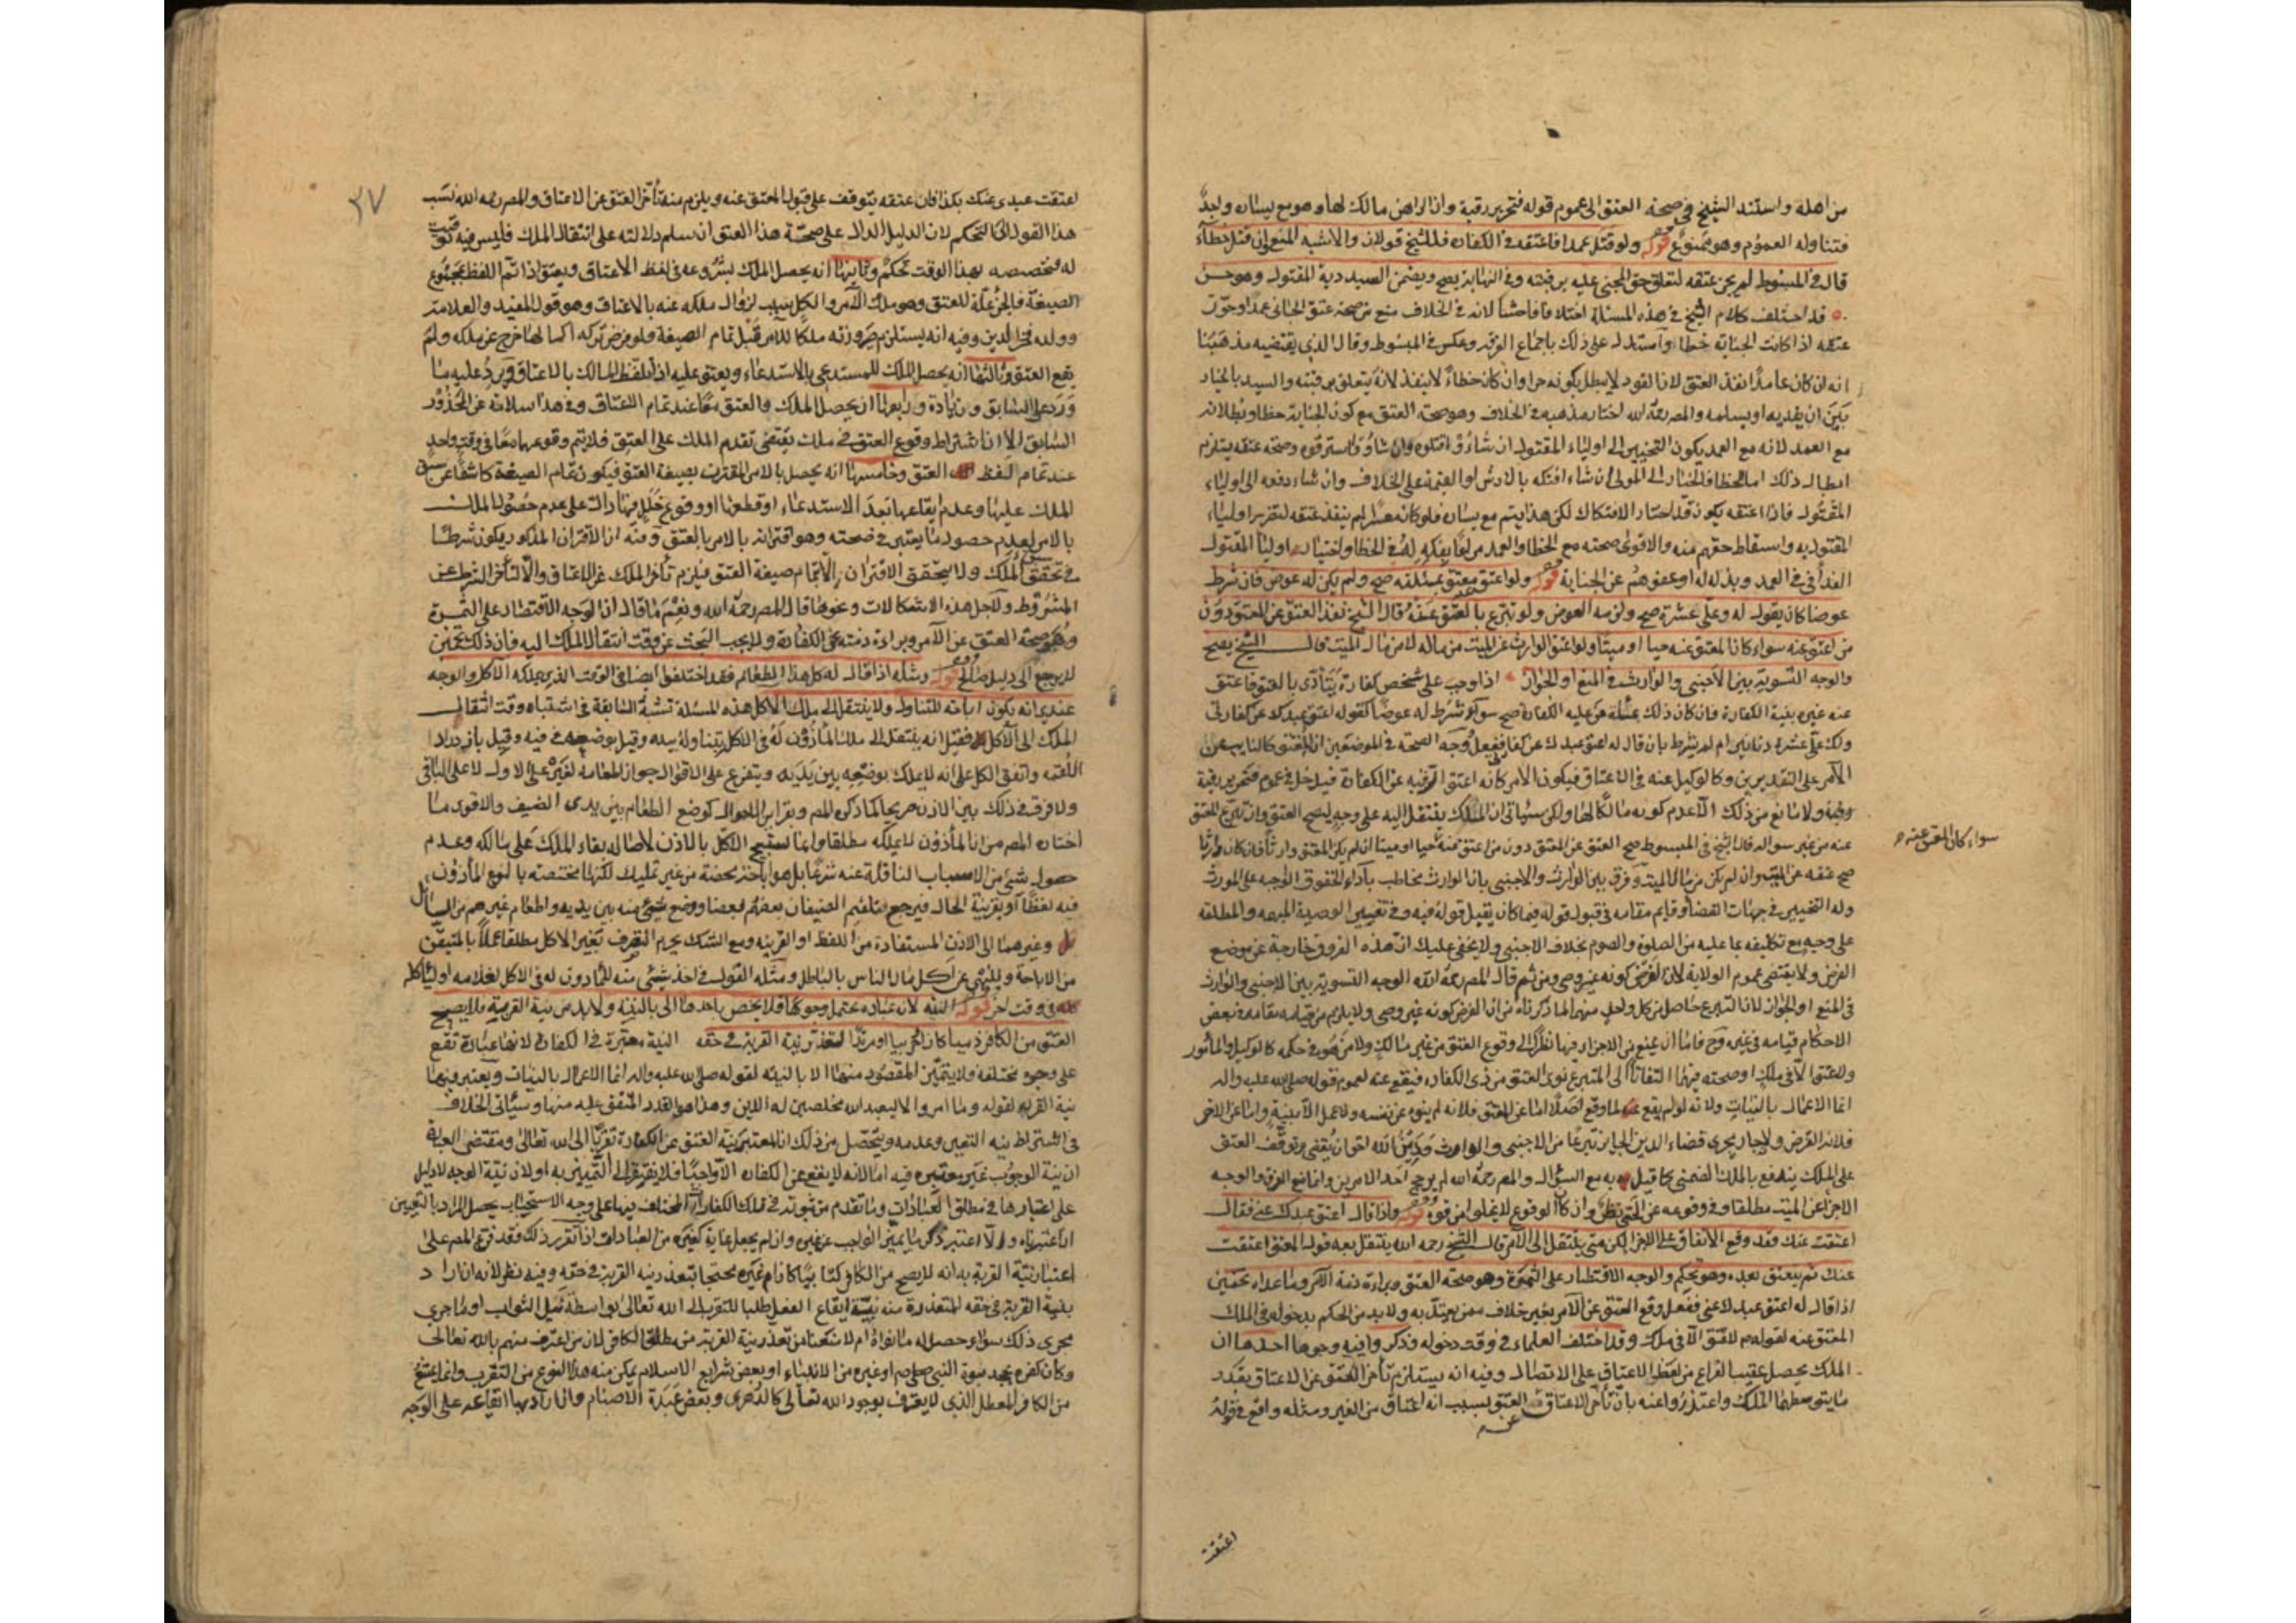 من اهله واستند الشيخ في صحة العتق الى عموم قوله فتحرير رقبة وان الراهن مالك لها وهو مع يساره ولجدّ
فتناوله العموم وهو ممنوع قوله ولو قتل عمدا فاعتقه في الكفارة فللشيخ قولان والاشبه المنع وان قتل خطأً
قال في المبسوط لم يجز عتقه لتعلق حق المجني عليه برقبته وفي النهاية يصح ويضمن السيد دية المقتول وهو حسن
قد اختلف كلام الشيخ في هذه المسئلة اختلافا فاحشا لانه في الخلاف منع من صحة عتق الجاني عمدا وجوّز
عتقه اذا كانت الجناية خطا واستدل على ذلك باجماع الفرقة وعكس في المبسوط وقال الذي يقتضيه مذهبنا
انه ان كان عامدا نفذ العتق لان القود لا يبطل بكونه حرا وان كان خطاءً لا ينفذ لانه يتعلق برقبته والسيد بالخيار
بين ان يفديه او يسلمه والمص رحمه الله اختار مذهبه في الخلاف وهو صحة العتق مع كون الجناية خطا وبطلانه
مع العمد لانه مع العمد يكون التخيير الى اولياء المقتول ان شاؤا قتلوه وان شاؤا استرقوه وصحة عتقه يستلزم
ابطال ذلك اما الخطا فالخيار الى المولى ان شاء افتكه بالارش او القيمة على الخلاف وان شاء دفعه الى اولياء
المقتول فاذا اعتقه يكون قد اختار الافتكاك لكن هذا يتم مع يساره فلو كان معسرا لم ينفذ عتقه لتضرر اولياء
المقتول به واسقاط حقهم منه والاقوى صحته مع الخطا والعمد مراعًا بفكه له في الخطا واختيار اولياء المقتول
الفداء في العمد وبذله له او عفوهم عن الجناية قوله ولو اعتق معتق بمسئلته صح ولم يكن له عوض فان شرط
عوضا كان يقول له وعليّ عشرة صح ولزمه العوض ولو تبرع بالعتق عنه قال الشيخ نفذ العتق عن المعتق دون
من اعتق عنه سواء كان المعتق عنه حيا او ميتا ولو اعتق الوارث عن الميت من ماله لا من مال الميت قال الشيخ يصح
والوجه التسوية بين الاجنبي والوارث في المنع او الجواز اذا وجب على شخص كفارة يتأدى بالعتق فاعتق
عنه غيره بنية الكفارة فان كان ذلك بمسئلة من عليه الكفارة صح سواء شرط له عوضا كقوله اعتق عبدك عن كفارتي
ولك عليّ عشرة دنانير ام لم يشرط بان قال له اعتق عبدك عن كفارتي ففعل وجه الصحة في الموضعين ان المعتق كالنايب عن
الآمر على التقديرين وكالوكيل عنه في الاعتاق فيكون الآمر كانه اعتق الرقبة عن الكفارة فيدخل في عموم فتحرير رقبة
ولا مانع من ذلك الا عدم كونه مالكا لها ولكن سيأتي ان الملك ينتقل اليه على وجه ليصح العتق وان تبرع المعتق
عنه من غير سؤاله قال الشيخ في المبسوط صح العتق عن المعتق دون من اعتق عنه حيا او ميتا ان لم يكن المعتق وارثا فان كان وارثا
سواء كان المعتق عنه ص
صح عتقه عن الميت وان لم يكن من مال الميت وفرق بين الوارث والاجنبي بان الوارث مخاطب بأداء الحقوق الواجبة على المورث
وله التخيير في جهات القضاء وقايم مقامه في قبول قوله فيما كان يقبل قوله فيه وفي تعيين الوصية المبهمة والمطلقة
على وجه مع تكليفه بما عليه من الصلوة والصوم بخلاف الاجنبي ولا يخفى عليك ان هذه الفروق خارجة عن موضع
الفرض ولا يقتضي عموم الولاية لان الفرض كونه غير وصي ومن ثم قال المص رحمه الله الوجه التسوية بين الاجنبي والوارث
في المنع او الجواز لان التبرع حاصل من كل واحد منهما لما ذكرناه من ان الفرض كونه غير وصي ولا يلزم من قيامه مقامه في بعض
الاحكام قيامه في غيره وح فاما ان يمنع من الاجزاء فيهما نظرا الى وقوع العتق من غير مالك ولا من هو في حكمه كالوكيل والمأمور
ولا عتق الا في ملك او صحته فيهما التفاتا الى ان المتبرع نوى العتق من ذي الكفارة فيقع عنه لعموم قوله صلى الله عليه واله
انما الاعمال بالنيات ولانه لو لم يقع عنه لما وقع اصلا اما عن المعتق فلانه لم ينوه عن نفسه ولا عمل الا بنية واما عن الاخر
فلانه الفرض ولاجار مجرى قضاء الدين الجايز تبرعا من الاجنبي والوارث ودين الله احق ان يقضى وتوقف العتق
على الملك يندفع بالملك الضمني كما قيل به مع السؤال والمص رحمه الله لم يرجح احد الامرين وانما نفع الفرق والوجه
الاجزاء عن الميت مطلقا وفي وقوعه عن الحي نظر وان كان الوقوع لا يخلو من قوة قوله واذا قال اعتق عبدك عني فقال
اعتقت عنك فقد وقع الاتفاق على الاجزاء لكن متى ينتقل الى الآمر قال الشيخ رحمه الله ينتقل بعد قول المعتق اعتقت
عنك ثم ينعتق بعده وهو تحكم والوجه الاقتصار على الثمرة وهو صحة العتق وبراءة ذمة الآمر وما عداه تخمين
اذا قال له اعتق عبدك عني ففعل وقع العتق عن الآمر بغير خلاف ممن يعتد به ولا بد من الحكم بدخوله في الملك
المعتق عنه لقوله لا عتق الا في ملك وقد اختلف العلماء في وقت دخوله وذكروا فيه وجوها احدها ان
الملك يحصل عقيب الفراغ من لفظ الاعتاق على الاتصال وفيه انه يستلزم تأخر العتق عن الاعتاق بقدر
ما يتوسطهما الملك واعتذروا عنه بان تأخر الاعتاق العتق بسبب انه اعتاق من الغير ومثله واقع في قوله
عن م
اعتقت
٣٧
اعتقت عبدي عنك بكذا فان عتقه يتوقف على قبول المعتق عنه ويلزم منه تأخر العتق عن الاعتاق والمص رحمه الله نسب
هذا القول الى التحكم لان الدليل الدال على صحة هذا العتق ان سلم دلالته على انتقال الملك فليس فيه توقيت
له فتخصيصه بهذا الوقت تحكم وثانيها انه يحصل الملك بشروعه في لفظ الاعتاق ويعتق اذا تم اللفظ بمجموع
الصيغة فالجزء علة للعتق وهو ملك الآمر والكل سبب لزوال ملكه عنه بالاعتاق وهو قول المفيد والعلامة
وولده فخر الدين وفيه انه يستلزم صيرورته ملكا للآمر قبل تمام الصيغة ولو فرض تركه اكمالها خرج عن ملكه ولم
يقع العتق وثالثها انه يحصل الملك للمستدعي بالاستدعاء ويعتق عليه اذا تلفظ المالك بالاعتاق ويرد عليه ما
ورد على السابق وزيادة ورابعها ان يحصل الملك والعتق معا عند تمام الاعتاق وفي هذا سلامة عن المحذور
السابق الا ان اشتراط وقوع العتق في ملك يقتضي تقدم الملك على العتق فلا يتم وقوعهما معا في وقت واحد
عند تمام لفظ العتق وخامسها انه يحصل بالامر المقترن بصيغة العتق فيكون تمام الصيغة كاشفا عن سبق
الملك عليها وعدم ايقاعها بعد الاستدعاء او قطعها او وقوع خلل فيها دالا على عدم حصول الملك
بالامر لعدم حصول ما يعتبر في صحته وهو اقترانه بالامر بالعتق وفيه ان الاقتران المذكور يكون شرطا
في تحقق الملك ولا يتحقق الاقتران الا بتمام صيغة العتق فيلزم تأخر الملك عن الاعتاق والا لتأخر الشرط عن
المشروط ولاجل هذه الاشكالات ونحوها قال المص رحمه الله ونعم ما قال ان الوجه الاقتصار على الثمرة
وهو صحة العتق عن الآمر وبراءة ذمته عن الكفارة ولا يجب البحث عن وقت انتقال الملك اليه فان ذلك تخمين
لا يرجع الى دليل صالح قوله ومثله اذا قال له كل هذا الطعام فقد اختلف ايضا في الوقت الذي يملكه الآكل والوجه
عندي انه يكون اباحة للتناول ولا ينتقل الى ملك الآكل هذه المسئلة تشبه السابقة في اشتباه وقت انتقال
الملك الى الآكل فقيل انه ينتقل الى ملك المأذون له في الاكل بتناوله بيده وقيل بوضعه في فيه وقيل بازدراد
اللقمة واتفق الكل على انه لا يملك بوضعه بين يديه ويتفرع على الاقوال جواز اطعامه لغيره على الاول لا على الباقي
ولا فرق في ذلك بين الاذن صريحا كما ذكره المص وبقراين الاحوال كوضع الطعام بين يدي الضيف والاقوى ما
اختاره المص من ان المأذون لا يملكه مطلقا وانما يستبيح الاكل بالاذن لاصالة بقاء الملك على مالكه وعدم
حصول شيء من الاسباب الناقلة عنه شرعا بل هو اباحة محضة من غير تمليك لكنها مختصة بالنوع المأذون
فيه لفظًا او بقرينة الحال فيرجع في تلقيم الضيفان بعضهم بعضا ووضع شيء منه بين يديه واطعام غيرهم من السائل
وغيرهما الى الاذن المستفادة من اللفظ او القرينة ومع الشك يحرم التصرف بغير الاكل مطلقا عملا بالمتيقن
من الاباحة وللنهي عن اكل مال الناس بالباطل ومثله القول في اخذ شيء منه للمأذون له في الاكل لغلامه او ليأكله
في وقت اخر قوله النية لانه عبادة يحتمل وجوها فلا يختص باحدها الا بالنية ولا بد من نية القربة فلا يصح
العتق من الكافر ذميا كان او حربيا او مرتدا لتعذر نية القربة في حقه النية معتبرة في الكفارة لانها عبادة تقع
على وجوه مختلفة ولا يتميز المقصود منها الا بالنية لقوله صلى الله عليه واله انما الاعمال بالنيات ويعتبر فيها
نية القربة لقوله وما امروا الا ليعبدوا الله مخلصين له الدين وهذا هو القدر المتفق عليه منها وسيأتي الخلاف
في اشتراط نية التعيين وعدمه ويتحصل من ذلك ان المعتبر نية العتق عن الكفارة تقربا الى الله تعالى ومقتضى العبارة
ان نية الوجوب غير معتبرة فيه اما لانه لا يقع عن الكفارة الا واجبا فلا يفتقر الى التمييز به او لان نية الوجه لا دليل
على اعتبارها في مطلق العبادات وما تقدم من ثبوته في تلك الكفارة المختلف فيها على وجه الاستحباب يحصل المراد بالتعيين
ان اعتبرناه والا اعتبر ذكر ما يميز الواجب عن غيره وان لم يجعل غاية كغيره من العبادات اذا تقرر ذلك فقد فرع المص على
اعتبار نية القربة به انه لا يصح من الكافر كتابيا كان ام غيره محتجا بتعذر نية القربة في حقه وفيه نظر لانه ان اراد
بنية القربة في حقه المتعذرة منه نية ايقاع الفعل طلبا للتقرب الى الله تعالى بواسطة نيل الثواب او ما جرى
مجرى ذلك سواء حصل له ما نواه ام لا منعنا من تعذر نية القربة من مطلق الكافر لان من اعترف منهم بالله تعالى
وكان كفره بجحد نبوة النبي صلعم او غيره من الانبياء او بعض شرايع الاسلام يمكن منه هذا النوع من التقرب وانما يمتنع
من الكافر المعطل الذي لا يعترف بوجود الله تعالى كالدهري وبعض عبدة الاصنام وان اراد بها ايقاعه على الوجه